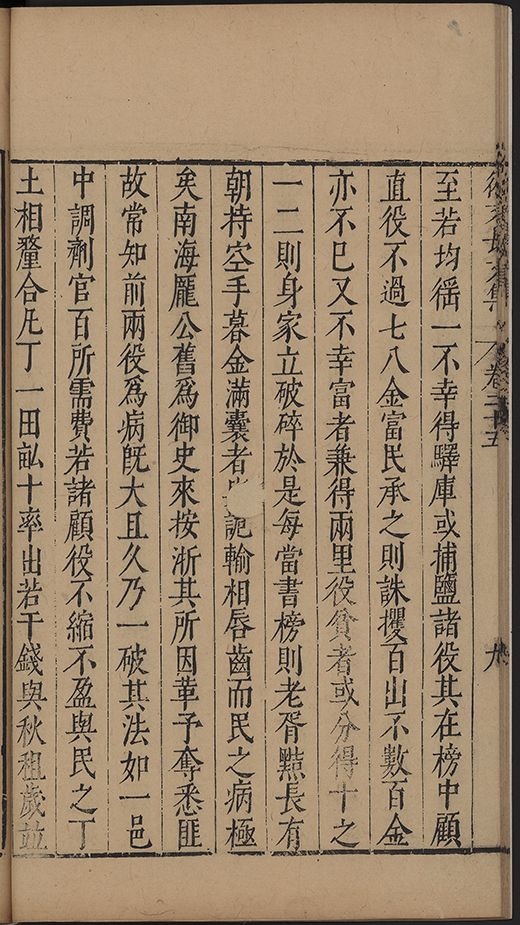 卷二十五 九
至若均徭一不幸得驛庫或捕鹽諸役其在榜中顧
直役不過七八金富民承之則誅攫百出不數百金
亦不已又不幸富者兼得兩里役貧者或分得十之
一二則身家立破碎於是每當書榜則老胥黠長有
朝持空手暮金滿囊者詭輸相唇齒而民之病極
矣南海龐公舊爲御史來按浙其所因革予奪悉匪
故常知前兩役爲病旣大且久乃一破其法如一邑
中調劑官百所需費若諸顧役不縮不盈與民之丁
土相釐合凡丁一田畝十率出若干錢與秋租歲並